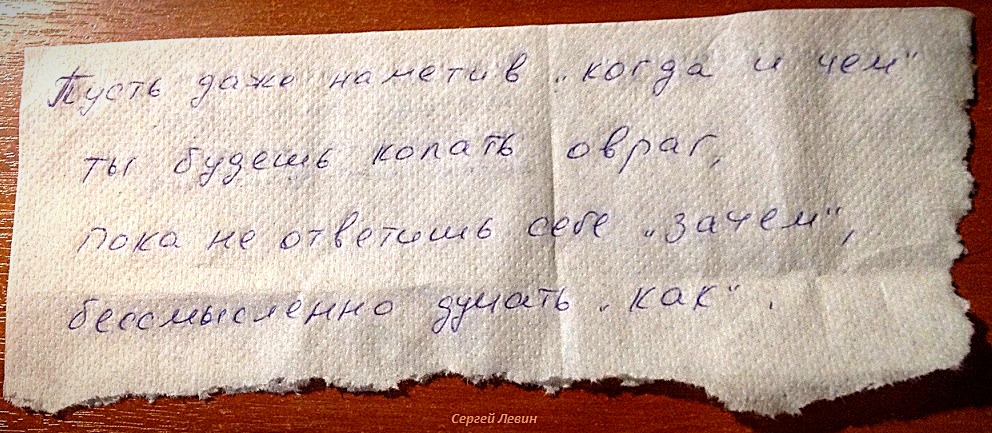 Пусть даже наметив „когда и чем“
ты будешь копать овраг,
пока не ответишь себе „зачем“,
бессмысленно думать „как“.
Сергей Левин